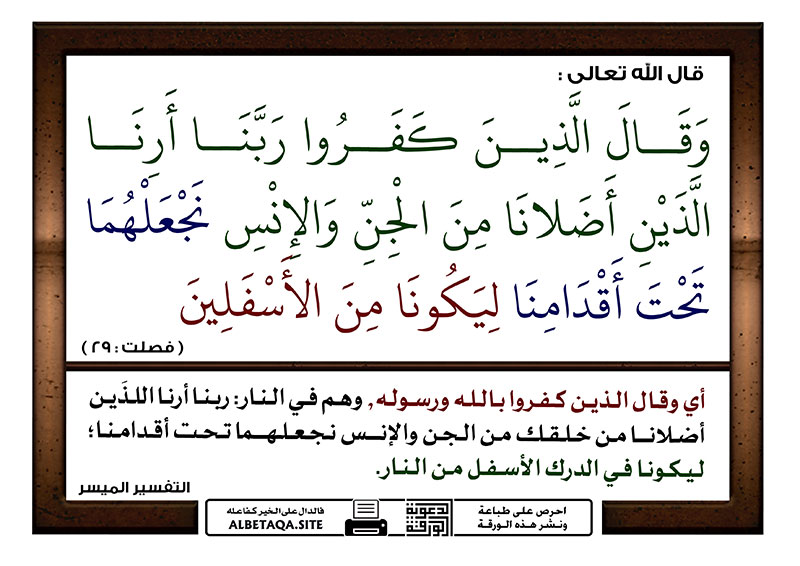 قال الله تعالى :
وَقَــالَ الَّذِيــنَ كَفَــرُوا رَبَّنَــا أَرِنَــا
الَّذَيْنِ أَضَلانَا مِنَ الْجِنِّ وَالإِنْسِ نَجْعَلْهُمَا
تَحْتَ أَقْدَامِنَا لِيَكُونَا مِنَ الأَسْفَلِينَ
( فصلت : ٢٩ )
أي وقال الذين كفروا بالله ورسوله, وهم في النار: ربنا أرنا اللذَين
أضلانا من خلقك من الجن والإنس نجعلهما تحت أقدامنا؛
ليكونا في الدرك الأسفل من النار.
التفسير الميسر
احرص على طباعة
ونشر هذه الورقة
الدعوية
الورقة
فالدال على الخير كفاعله
ALBETAQA.SITE